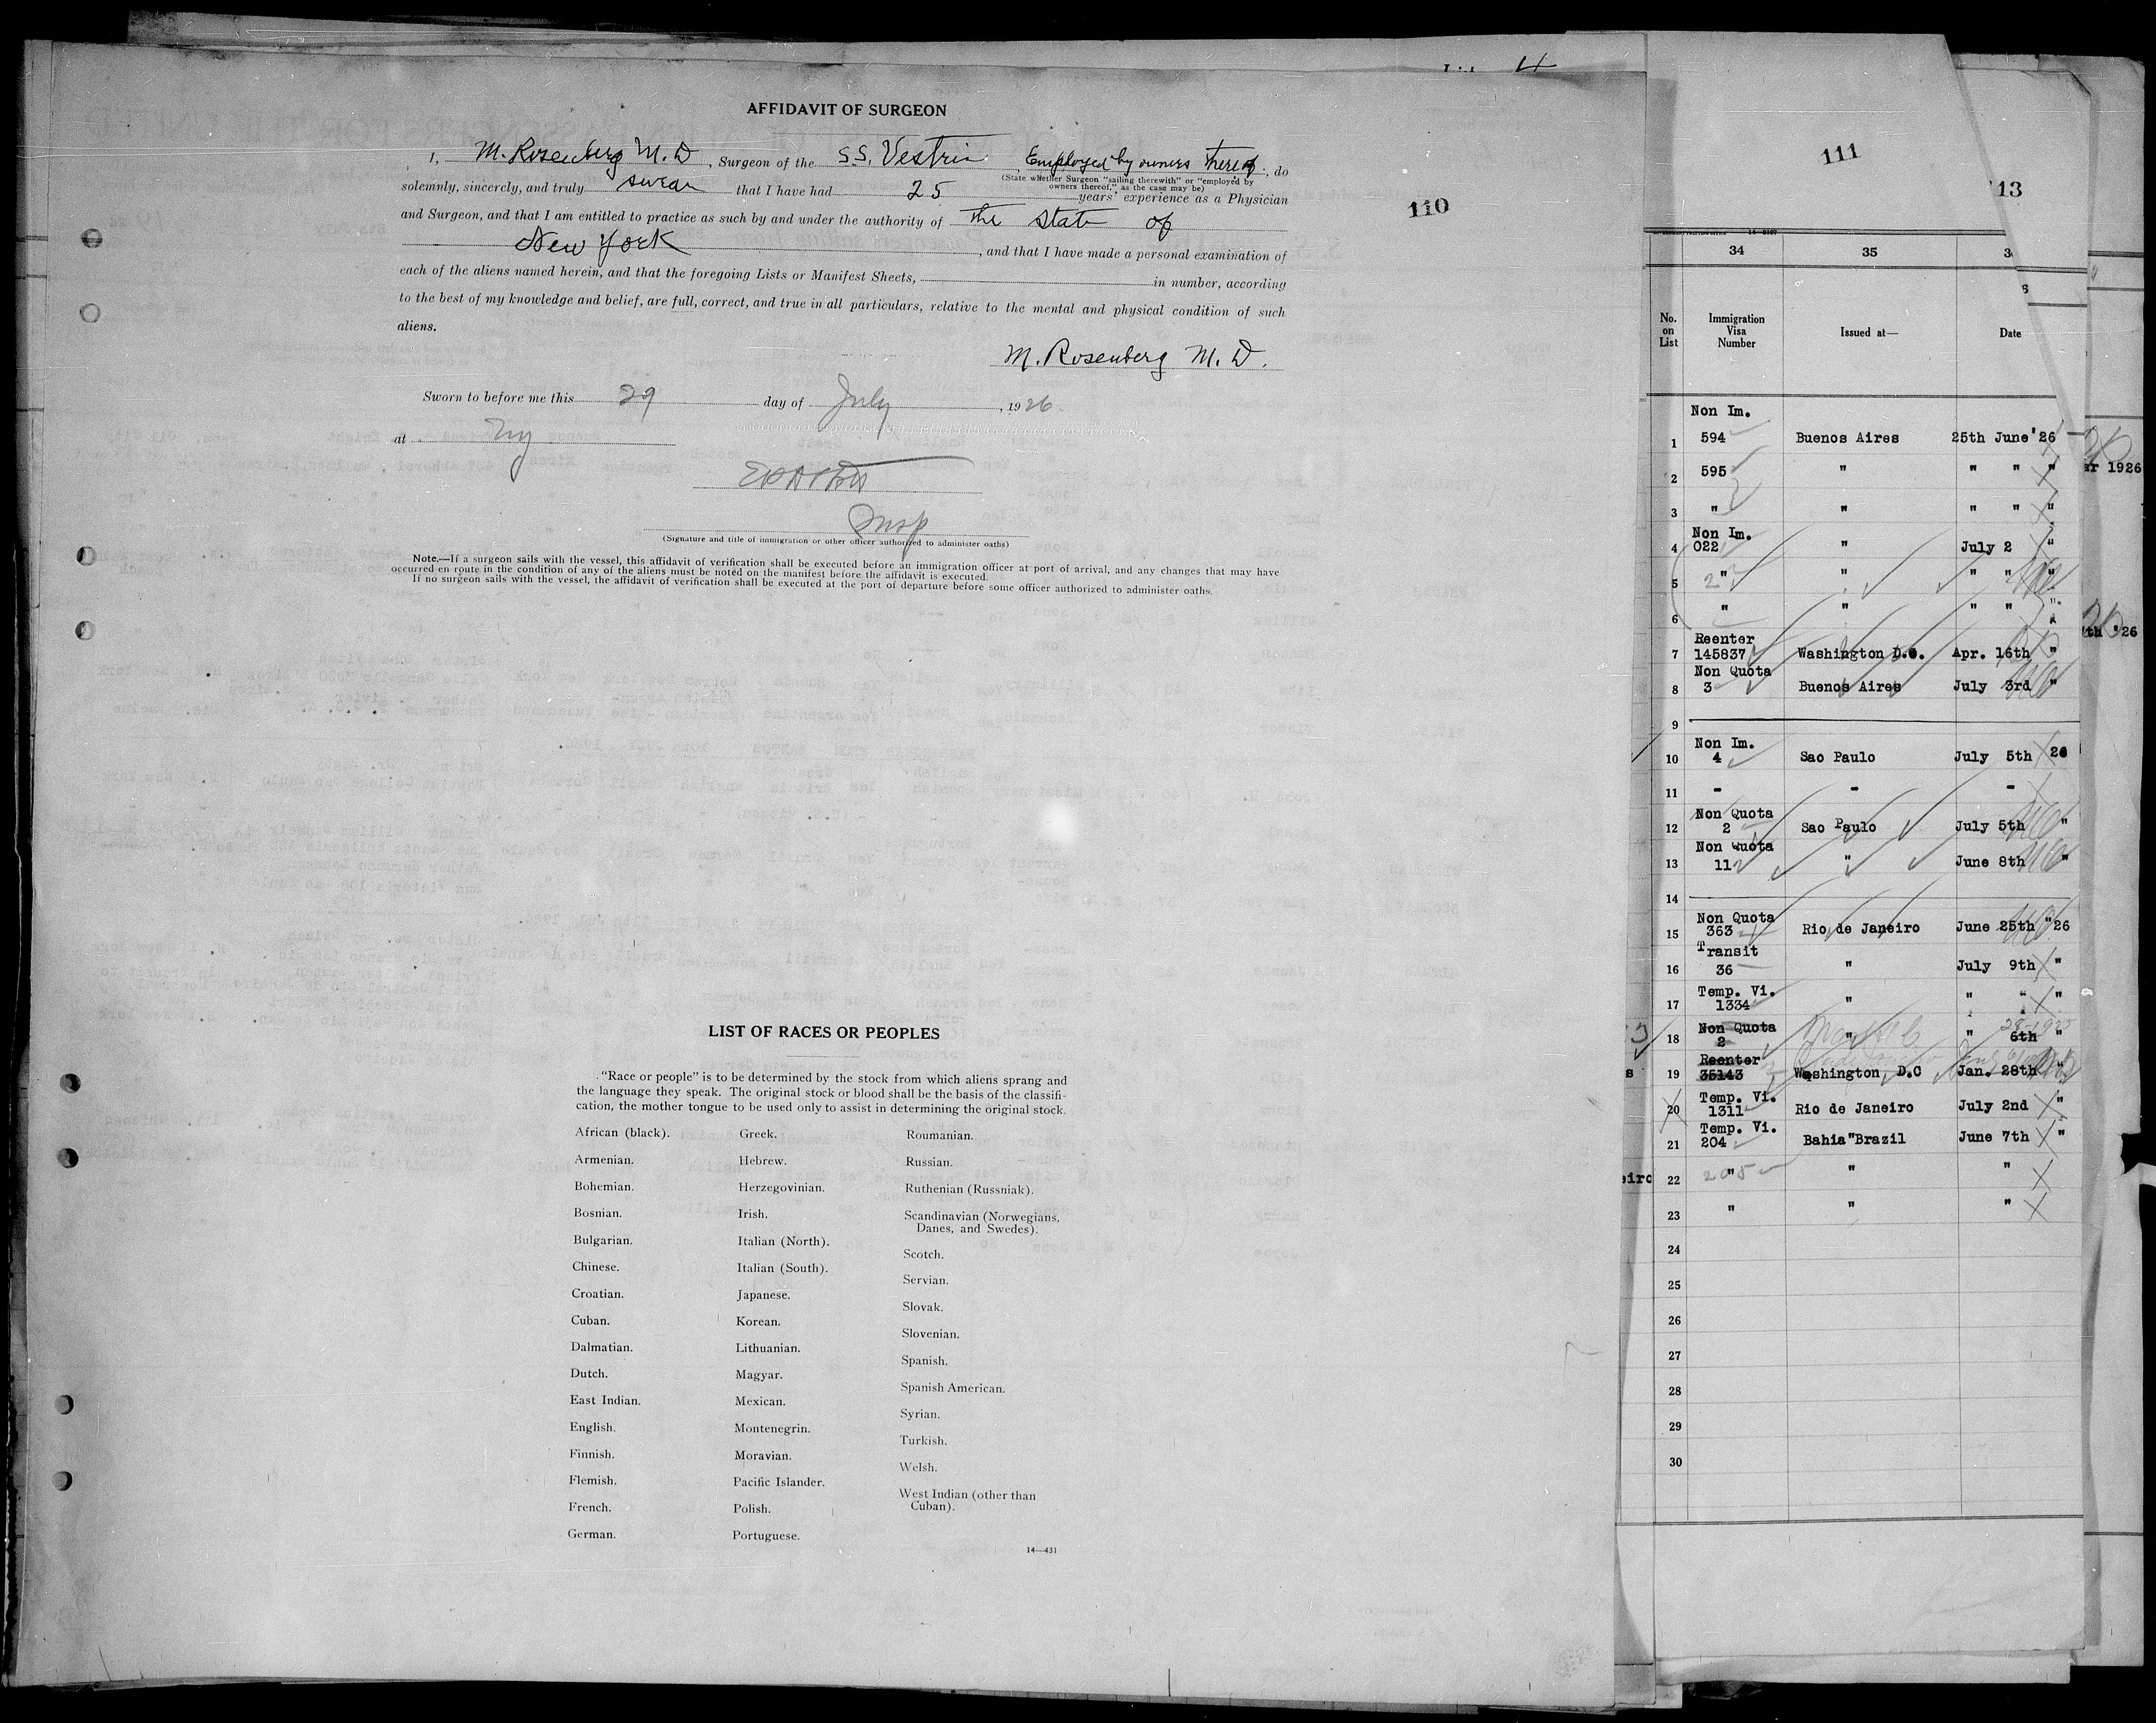 List 4
AFFIDAVIT OF SURGEON
I, M. Rosenberg M.D, Surgeon of the S.S. Vestris Employed by owners thereof, do
(State whether Surgeon "sailing therewith" or "employed by
owners thereof," as the case may be)
solemnly, sincerely, and truly swear that I have had 25 years' experience as a Physician
and Surgeon, and that I am entitled to practice as such by and under the authority of The State of
New York, and that I have made a personal examination of
each of the aliens named herein, and that the foregoing Lists or Manifest Sheets, in number, according
to the best of my knowledge and belief, are full, correct, and true in all particulars, relative to the mental and physical condition of such
aliens.
M. Rosenberg M.D.
Sworn to before me this 29 day of July, 1926
at NY
Insp
(Signature and title of immigration or other officer authorized to administer oaths)
Note.—If a surgeon sails with the vessel, this affidavit of verification shall be executed before an immigration officer at port of arrival, and any changes that may have
occurred en route in the condition of any of the aliens must be noted on the manifest before the affidavit is executed.
If no surgeon sails with the vessel, the affidavit of verification shall be executed at the port of departure before some officer authorized to administer oaths.
110
LIST OF RACES OR PEOPLES
"Race or people" is to be determined by the stock from which aliens sprang and
the language they speak. The original stock or blood shall be the basis of the classifi-
cation, the mother tongue to be used only to assist in determining the original stock.
African (black).
Armenian.
Bohemian.
Bosnian.
Bulgarian.
Chinese.
Croatian.
Cuban.
Dalmatian.
Dutch.
East Indian.
English.
Finnish.
Flemish.
French.
German.
Greek.
Hebrew.
Herzegovinian.
Irish.
Italian (North).
Italian (South).
Japanese.
Korean.
Lithuanian.
Magyar.
Mexican.
Montenegrin.
Moravian.
Pacific Islander.
Polish.
Portuguese.
Roumanian.
Russian.
Ruthenian (Russniak).
Scandinavian (Norwegians,
Danes, and Swedes).
Scotch.
Servian.
Slovak.
Slovenian.
Spanish.
Spanish American.
Syrian.
Turkish.
Welsh.
West Indian (other than
Cuban).
14—431
111
13
34 35 3
No. on List Immigration Visa Number Issued at— Date
Non Im.
1 594 Buenos Aires 25th June '26
2 595 " " " "
3 " " " " "
Non Im.
4 022 " July 2 "
5 " " " " "
6 " " " " "
Reenter
7 145837 Washington D.C. Apr. 16th "
Non Quota
8 3 Buenos Aires July 3rd "
9
Non Im.
10 4 Sao Paulo July 5th 26
11 - - -
Non Quota
12 2 Sao Paulo July 5th "
Non Quota
13 11 " June 8th "
14
Non Quota
15 363 Rio de Janeiro June 25th "26
Transit
16 36 " July 9th "
Temp. Vi.
17 1334 " " " "
Non Quota
18 2 " " 6th "
Reenter
19 35143 Washington, D.C Jan. 28th "
Temp. Vi.
20 1311 Rio de Janeiro July 2nd "
Temp. Vi.
21 204 Bahia"Brazil June 7th "
22 " 205 " "
23 " " "
24
25
26
27
28
29
30
eiro
ar 1926
7th '26